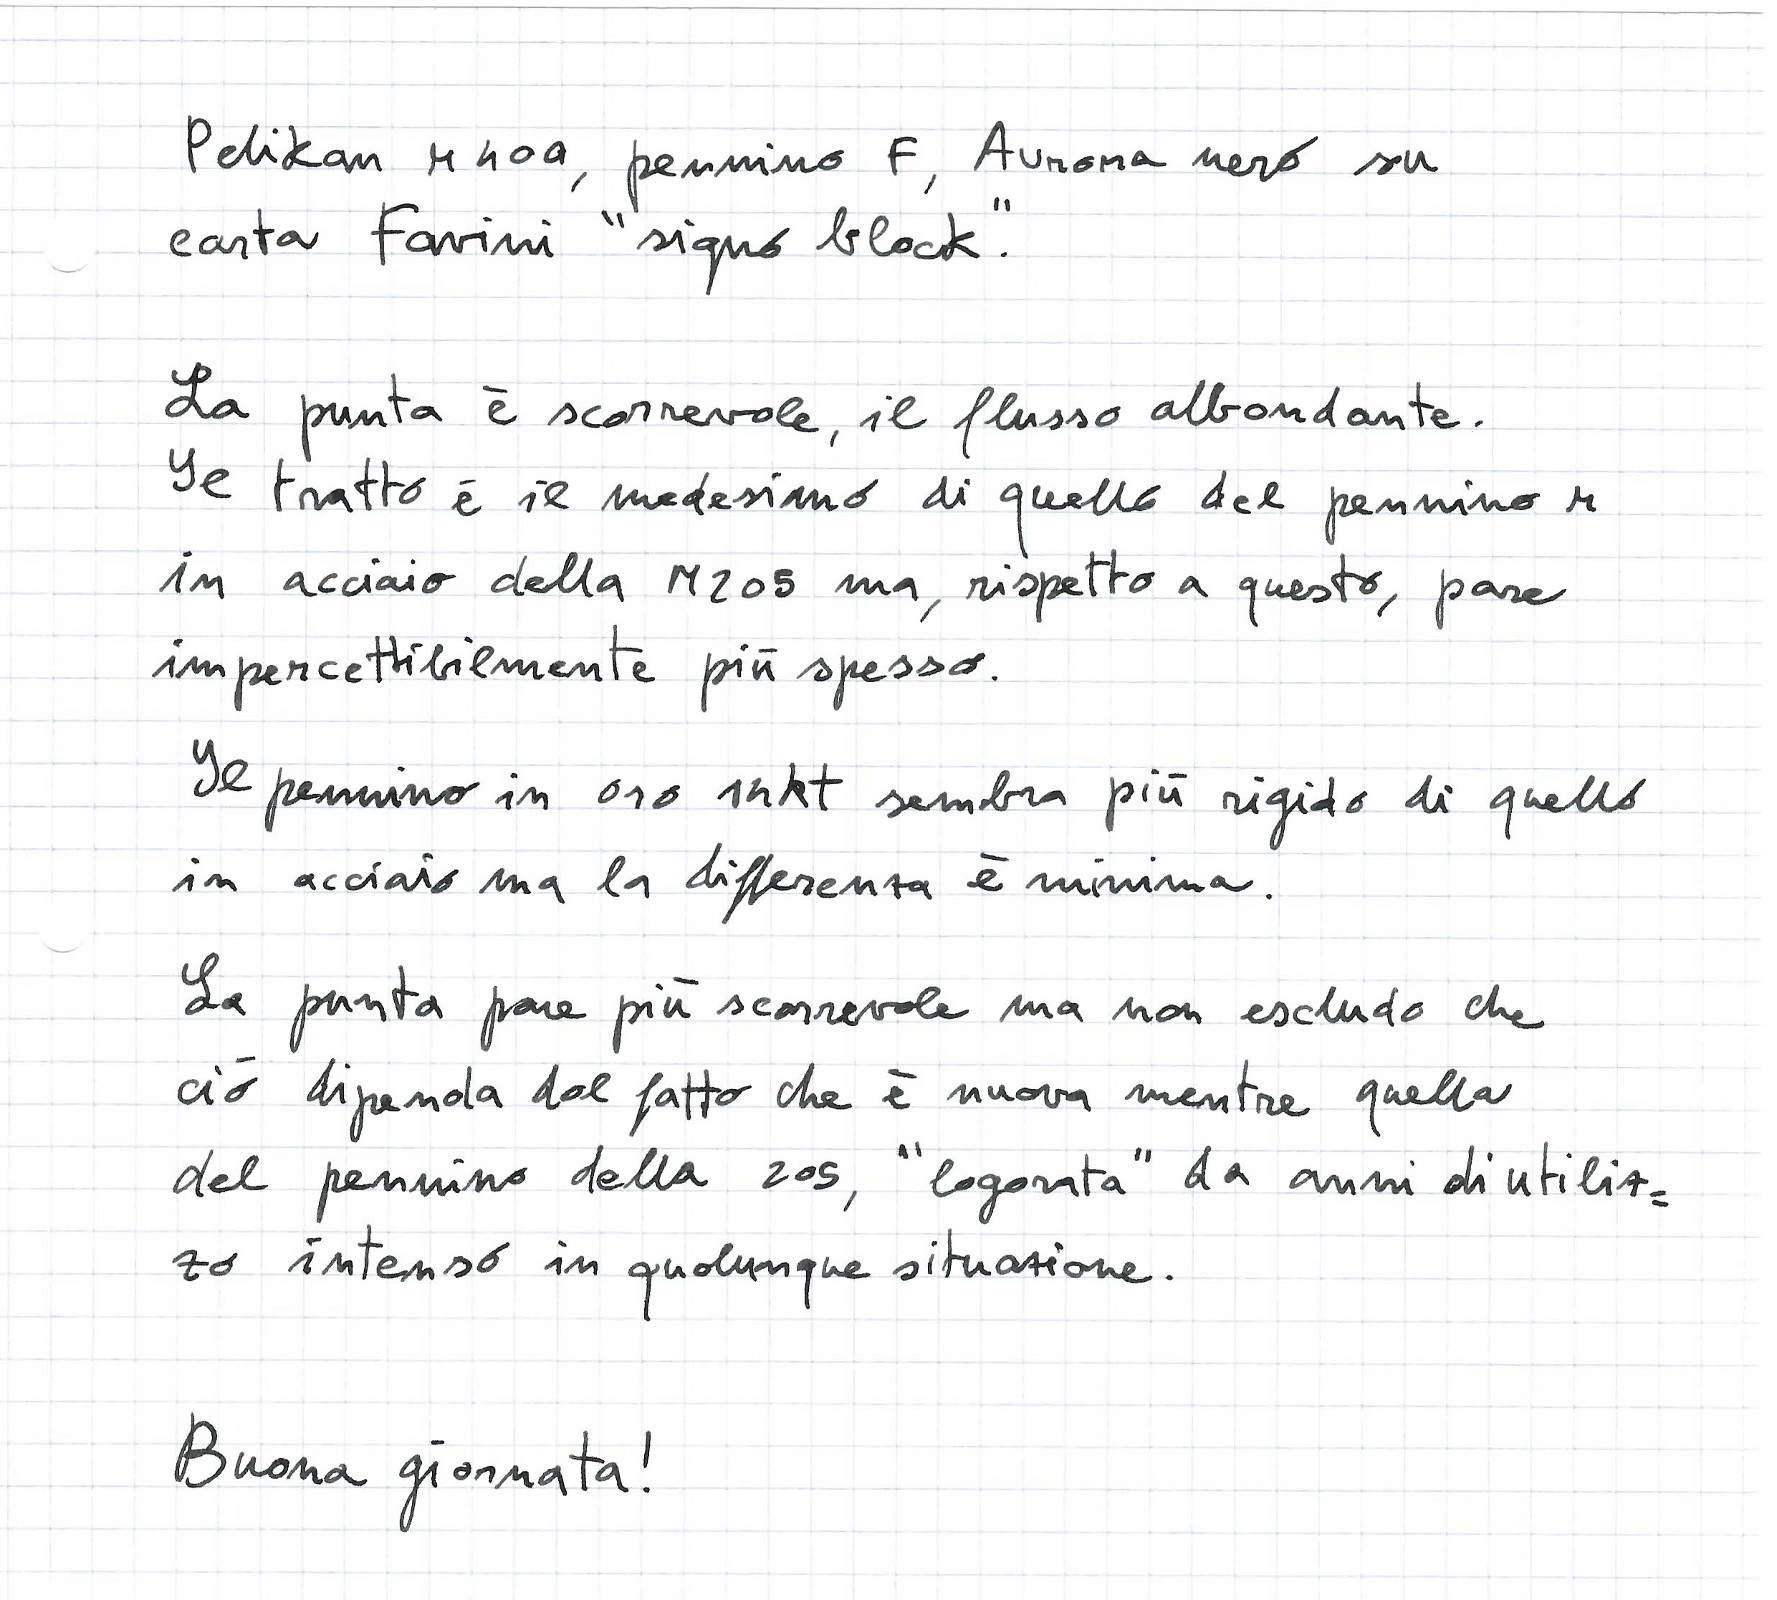 Pelikan M400, pennino F, Aurora nero su
carta Favini "signo block".
La punta è scorrevole, il flusso abbondante.
Il tratto è il medesimo di quello del pennino M
in acciaio della M205 ma, rispetto a questo, pare
impercettibilmente più spesso.
Il pennino in oro 14kt sembra più rigido di quello
in acciaio ma la differenza è minima.
La punta pare più scorrevole ma non escludo che
ciò dipenda dal fatto che è nuova mentre quella
del pennino della 205, "logorata" da anni di utiliz=
zo intenso in qualunque situazione.
Buona giornata!